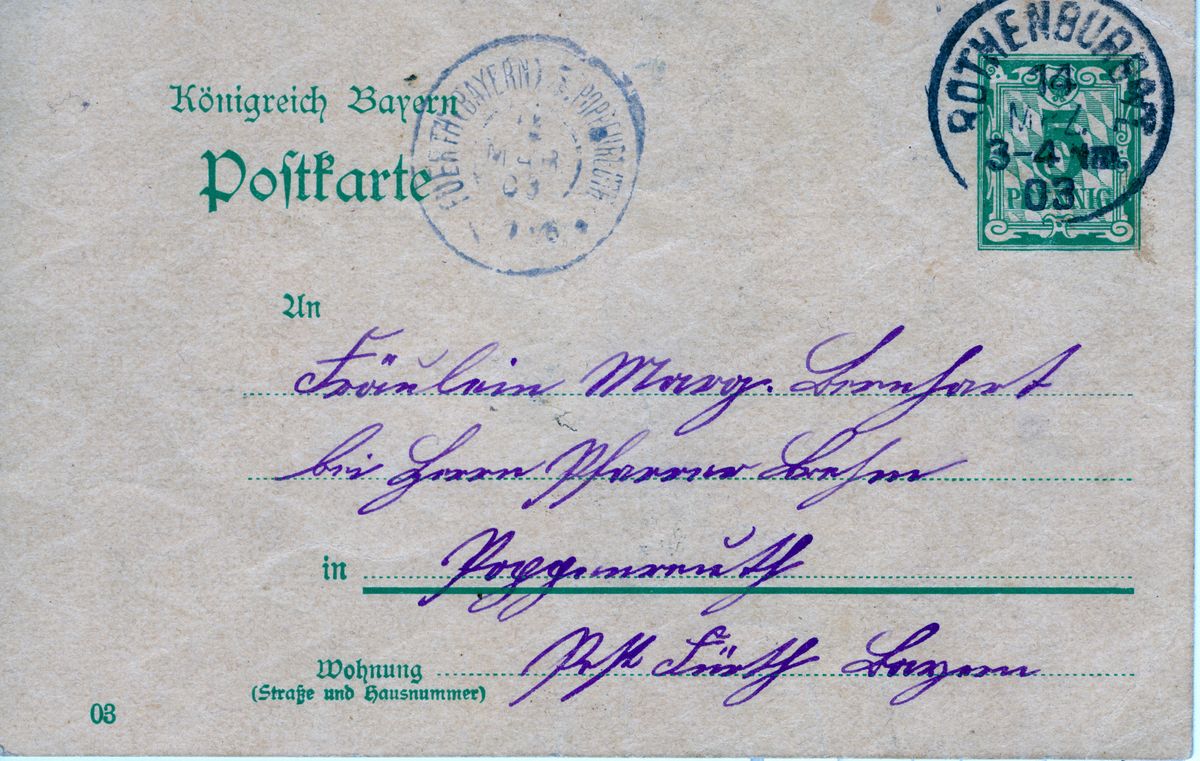 Königreich Bayern
Postkarte
FUERTH (BAYERN)
MAR
03
ROTHENBURG
14
MRZ.
3-4 Nm.
03
5
PFENNIG
An
Fräulein Marg. Bernhart
bei Herrn Pfarrer Brehm
in Poppenreuth
Post Fürth Bayern
Wohnung
(Straße und Hausnummer)
03